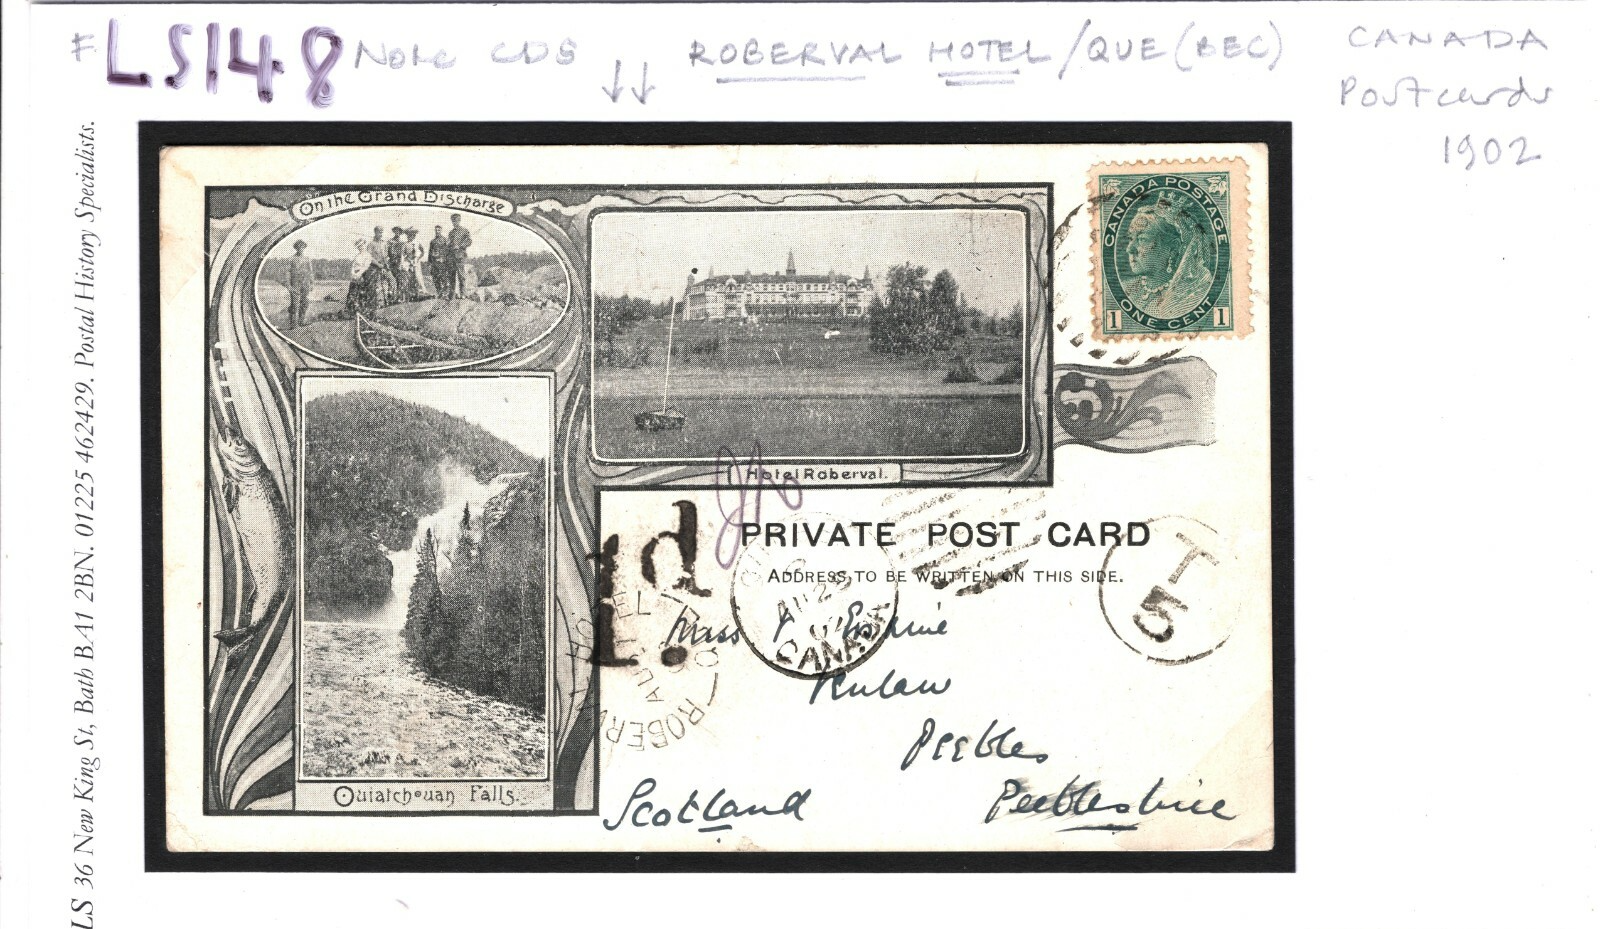 LS148 Note CDS ↓↓ ROBERVAL HOTEL/QUE(BEC)
CANADA
Postcards
1902
LS 36 New King St, Bath BA1 2BN. 01225 462429. Postal History Specialists.
On the Grand Discharge
Hotel Roberval.
Ouiatchouan Falls.
CANADA POSTAGE
1 ONE CENT 1
1d.
PRIVATE POST CARD
ADDRESS TO BE WRITTEN ON THIS SIDE.
AU 23
CANADA
T
5
ROBERVAL HOTEL
AU
Miss
Peebles
Scotland Peeblesshire